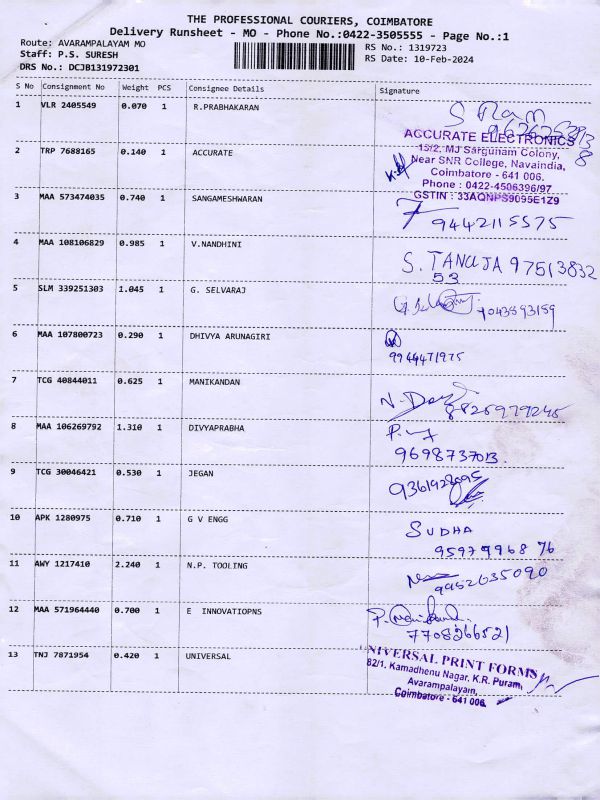 THE PROFESSIONAL COURIERS, COIMBATORE
Delivery Runsheet - MO - Phone No.:0422-3505555 - Page No.:1
Route: AVARAMPALAYAM MO
RS No.: 1319723
Staff: P.S. SURESH
RS Date: 10-Feb-2024
DRS No.: DCJB131972301
S No Consignment No Weight PCS Consignee Details Signature
1 VLR 2405549 0.070 1 R.PRABHAKARAN
2 TRP 7688165 0.140 1 ACCURATE
ACCURATE ELECTRONICS
15/2, MJ Sargunam Colony,
Near SNR College, Navaindia,
Coimbatore - 641 006.
Phone : 0422-4506396/97
GSTIN : 33AQNPS9095E1Z9
3 MAA 573474035 0.740 1 SANGAMESHWARAN
9442115575
4 MAA 108106829 0.985 1 V.NANDHINI
S. TANUJA 97513832
53
5 SLM 339251303 1.045 1 G. SELVARAJ
6 MAA 107800723 0.290 1 DHIVYA ARUNAGIRI
9944471975
7 TCG 40844011 0.625 1 MANIKANDAN
8825979245
8 MAA 106269792 1.310 1 DIVYAPRABHA
9698737013.
9 TCG 30046421 0.530 1 JEGAN
10 APK 1280975 0.710 1 G V ENGG
SUDHA
9597996876
11 AWY 1217410 2.240 1 N.P. TOOLING
9952635090
12 MAA 571964440 0.700 1 E INNOVATIOPNS
7708266521
13 TNJ 7871954 0.420 1 UNIVERSAL
UNIVERSAL PRINT FORMS
82/1, Kamadhenu Nagar, K.R. Puram,
Avarampalayam,
Coimbatore - 641 006.